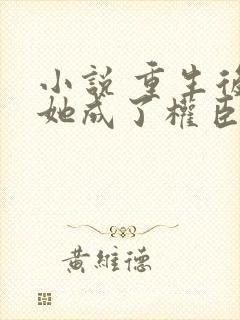 小說 重生後
她成了權臣
黃維德